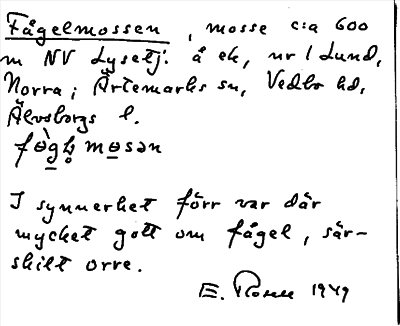 Fågelmossen, mosse c:a 600
m NV Lysetj. å ek, nr 1 Lund,
Norra; Ärtemarks sn, Vedbo hd,
Älvsborgs l.
I synnerhet förr var där
mycket gott om fågel, sär-
skilt orre.
E. 1949